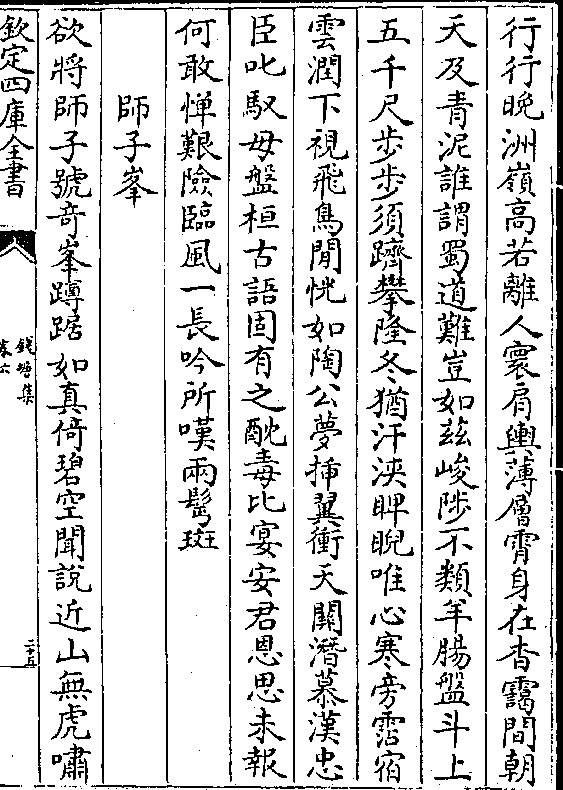 行行晚洲嶺高若離人寰肩輿薄層霄身在杳靄間朝
天及青泥誰謂蜀道難豈如茲峻陟不類羊腸盤斗上
五千尺步步須躋攀隆冬猶汗浹睥睨唯心寒旁霑宿
雲潤下視飛鳥閒恍如陶公夢揷翼衝天關潛慕漢忠
臣叱馭毋盤桓古語固有之酖毒比宴安君恩思未報
何敢憚艱險臨風一長吟所嘆兩鬢斑
師子峯
欲將師子號竒峯蹲踞如真倚碧空聞說近山無虎嘯
欽定四庫全書
錢塘集
卷六
二十五